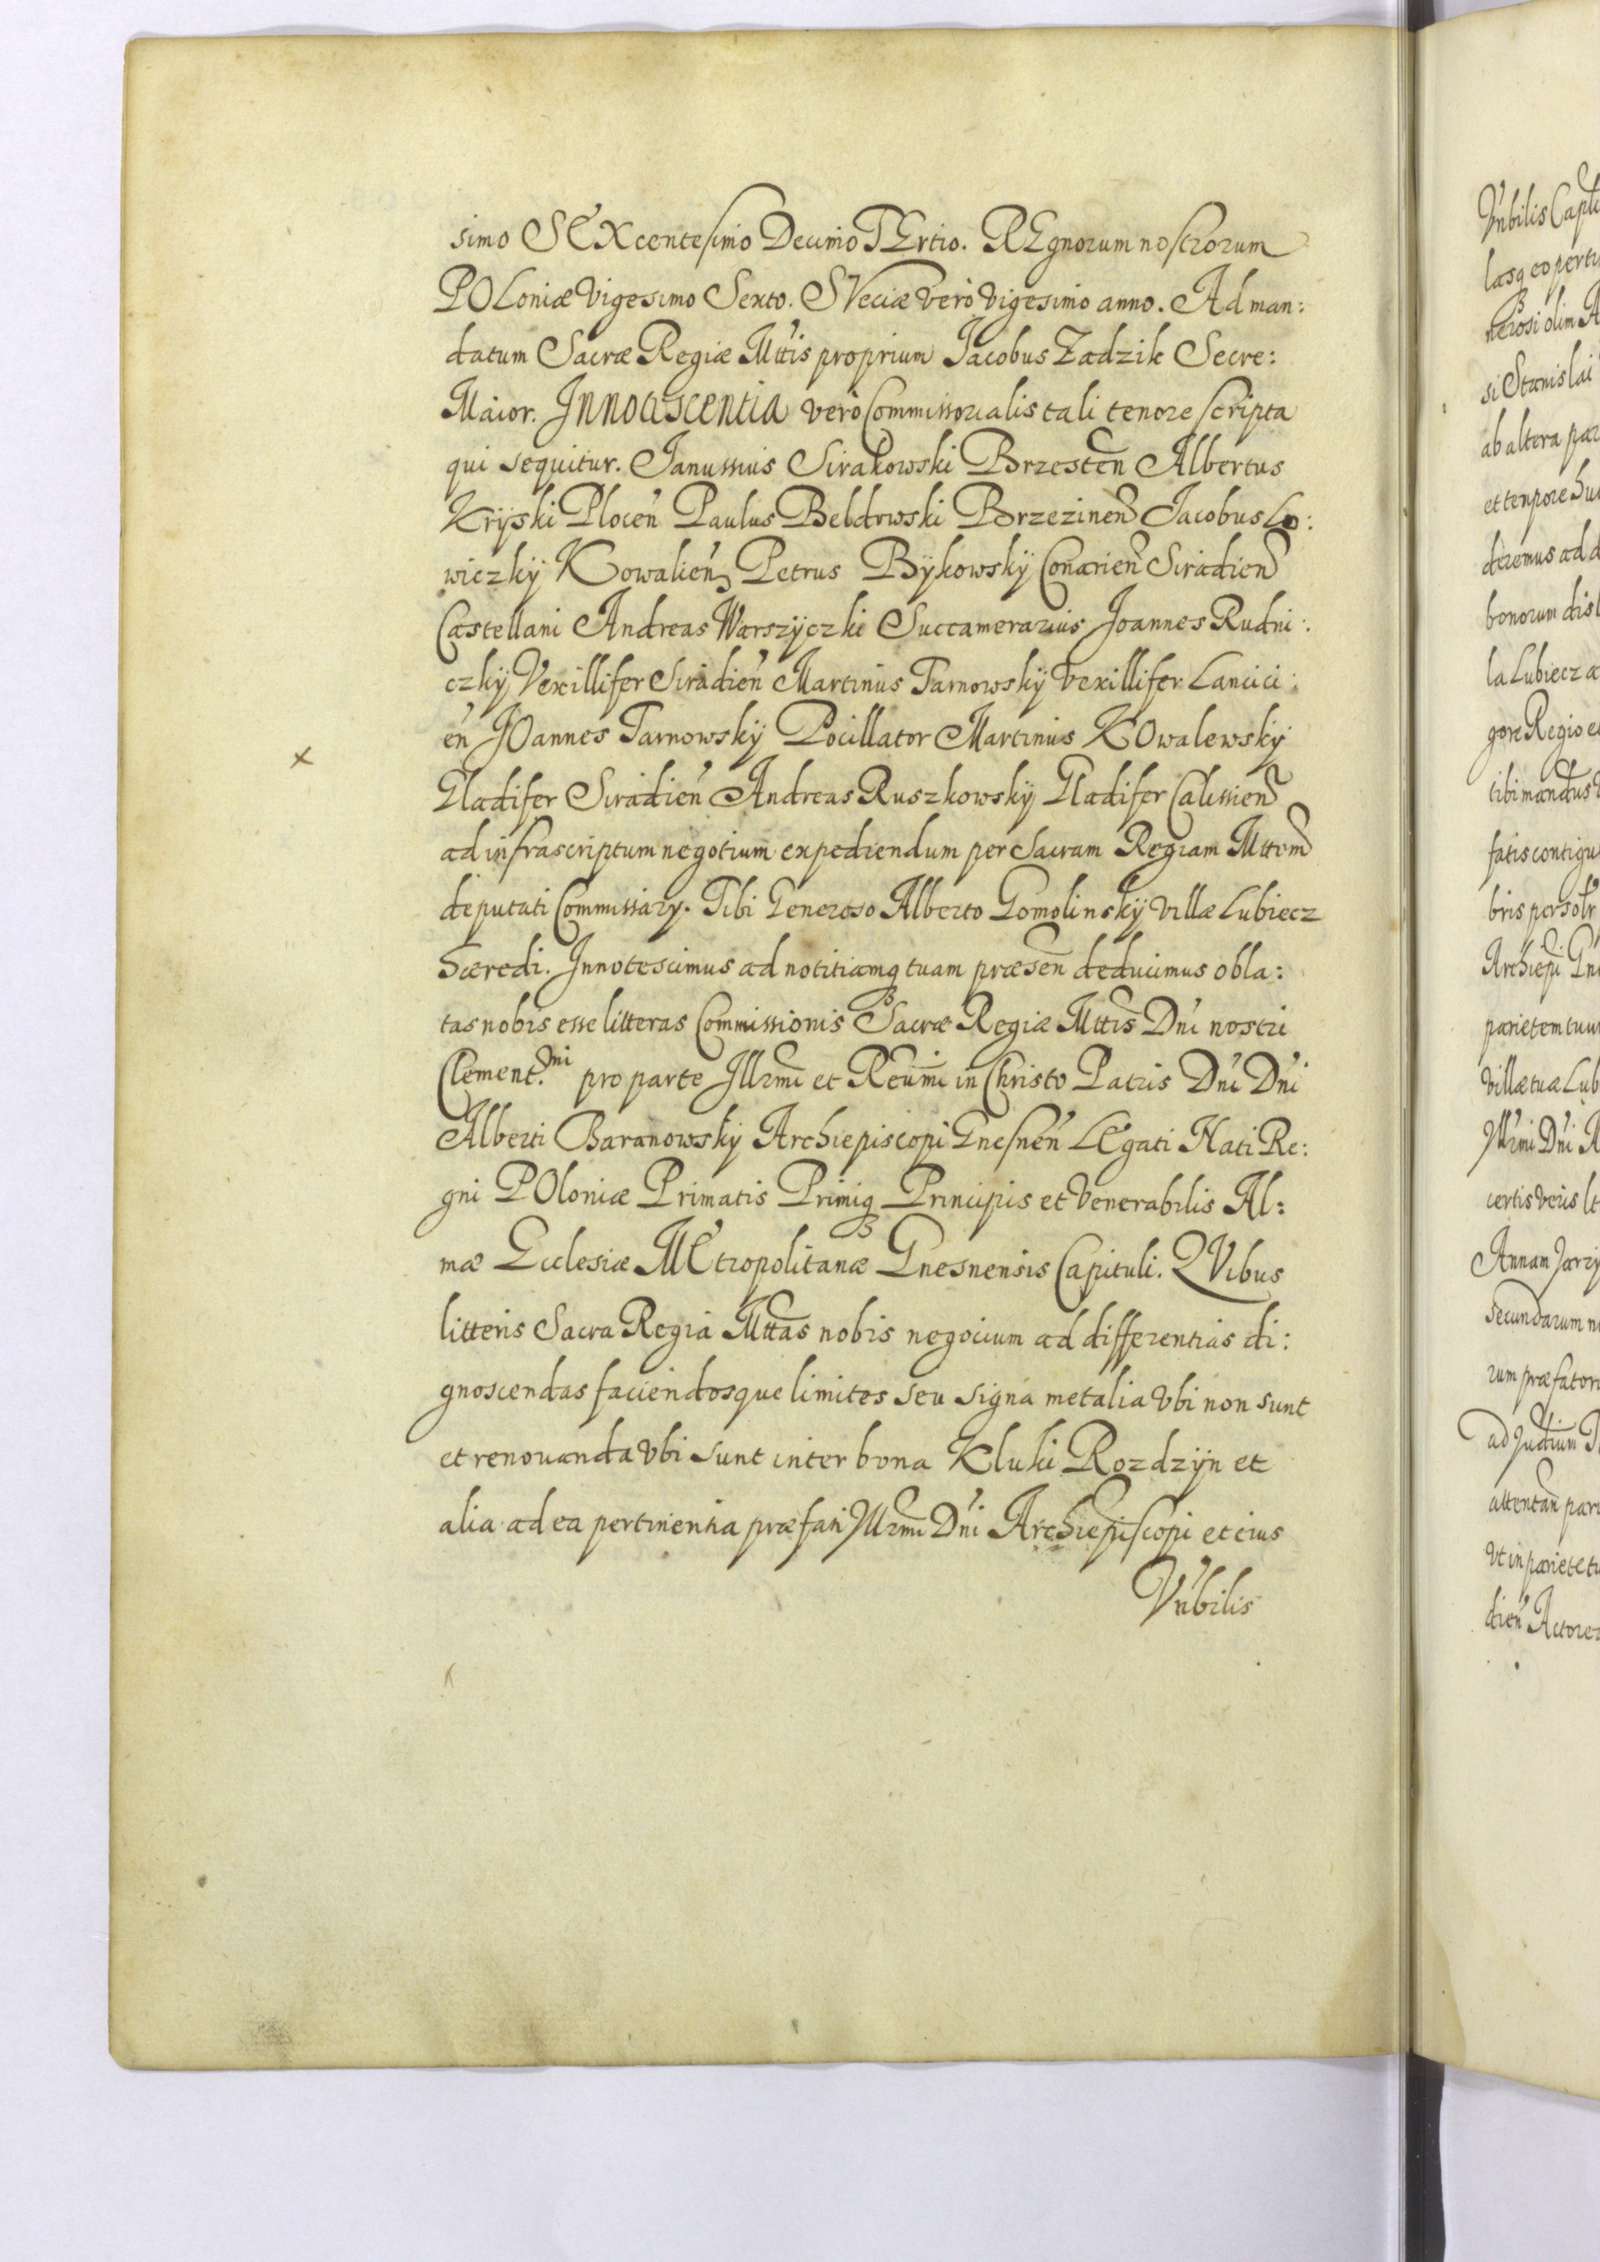 simo SEXcentesimo Decimo TErtio. REgnorum nostrorum
POLoniæ Vigesimo Sexto. SVeciæ verò vigesimo anno. Ad man:
datum Sacræ Regiæ Mttis proprium Jacobus Zadzik Secre:
Maior. Innotescentia verò Commissorialis tali tenore scripta
qui sequitur. Janussius Sirakowski Brzesten Albertus
Krÿski Plocen Paulus Beldowski Brzezinen Jacobus Lo:
wiczkÿ Kowalien Petrus Bÿkowskÿ Conarien Siradien
Castellani Andreas Warszÿczki Succamerarius Joannes Rudni:
czkÿ Vexillifer Siradien Martinus Tarnowskÿ Vexillifer Lancici:
en JOannes Tarnowskÿ Pocillator Martinus KOwalewskÿ
Gladifer Siradien Andreas Ruszkowskÿ Gladifer Calissien
ad infrascriptum negotium expediendum per Sacram Regiam Mttem
deputati Commissarÿ. Tibi Generoso Alberto Gomolinskÿ villæ Lubiecz
Hæredi. Innotescimus ad notitiamq tuam præsen deducimus obla:
tas nobis esse litteras Commissionis Sacræ Regiæ Mttis Dni nostri
Clement.mi pro parte Illrmi et Reumi in Christo Patris Dni Dni
Alberti Baranowskÿ Archiepiscopi Gnesnen LEgati Nati Re:
gni POloniæ Primatis Primiq Principis et Venerabilis Al:
mæ Ecclesiæ MEtropolitanæ Gnesnensis Capituli. QVibus
litteris Sacra Regia Mttas nobis negocium ad differentias di:
gnoscendas faciendosque limites seu signa metalia vbi non sunt
et renouanda vbi sunt inter bona Kluki Rozdzÿn et
alia ad ea pertinentia præfati Illrmi Dni Archiepiscopi et eius
Vnbilis
Vnbilis Capli
si Stanislai
ab altera par
et tempore hu
deremus ad d
bonorum dis
la Lubiecz a
gore Regio e
tibi mandtus
fatis contigu
Archiepi Gn
parietem tuu
villæ tuæ Lub
Illrmi Dni A
certis veris
Annam Jarzy
secundarum n
rum præfator
ad Judium
attentan pari
vt in pariete tu
dien Actore